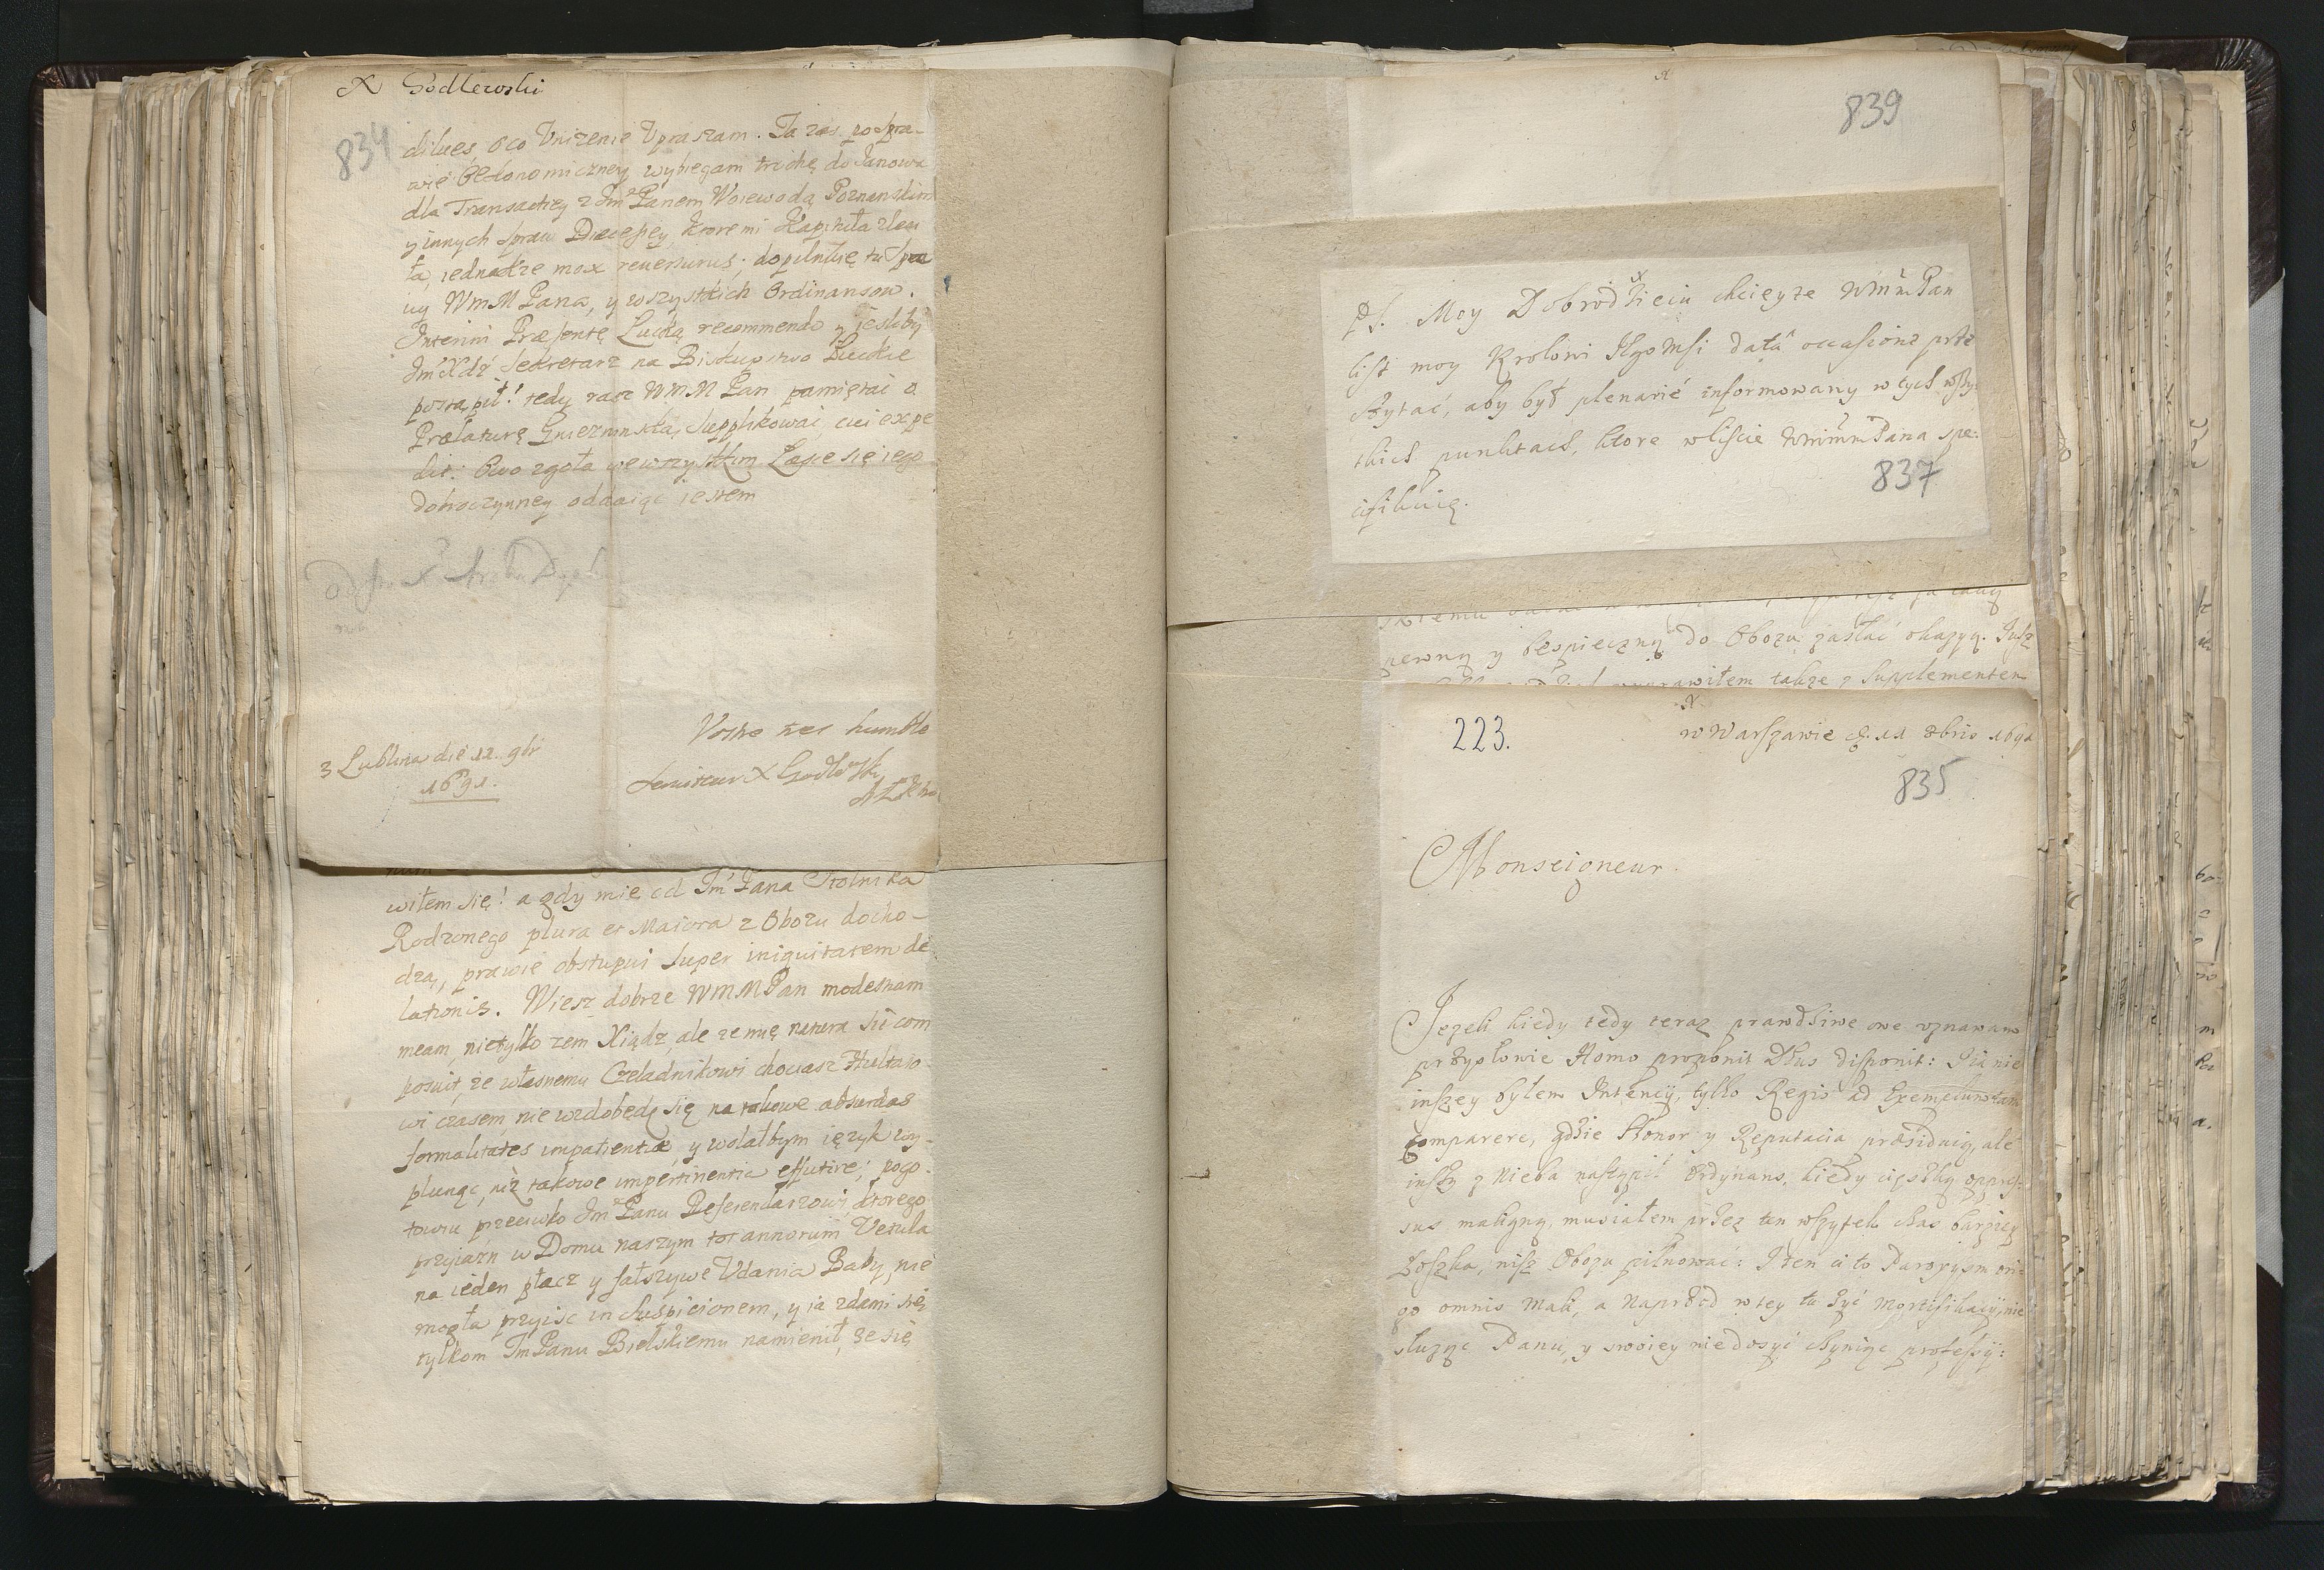 X Godlewski
834
diluęs, oco Vnizenie Vpraszam. Ja zas po spra-
wie Oekonomiczney wybiegam trochę do Janowa
dla Transactiey z Jm Panem Woiewodą Poznanskim
y innych spraw Diecesiey, ktore mi Kapituła zleci
ła, iednakze mox reuersurus; dopilnuię tu spra
wy WmM Pana, y wszystkich Ordinansow.
Interim Præsentę Lucką recommendo y jesliby
Jm Xdz Sekretarz na Biskupstwo Luckie
postąpił! tedy racz WMM Pan pamiętai o
Prælaturę Gniezninską supplikowai, cui expe
dit: Owo zgoła we wszystkim Łasce się iego
dobroczynney oddaiąc jestem
Vostre tres humble
seruiteur X Godlewski
z Lublina die 12. 9br
1691.
witem się! a gdy mię od Jm Pana Stolnika
Rodzonego plura et Maiora z Obozu docho-
dzą, prawie obstupui super iniquitatem de
lationis. Wiesz dobrze WMM Pan modestiam
meam, nietylko zem Xiądz, ale ze mię natura sic com
posuit, ze własnemu Czeladnikowi chociasz Hultaio
wi czasem nie wzdobędę się na takowe absurdas
formalitates impatientiæ, y wolałbym ięzyk wy-
plunąc, niz takowe impertinentia effutire; pogo-
towiu przeciwko Jm Panu Referendarzowi, ktorego
przyiazn w Domu naszym tot annorum Vetula
na ieden płacz y fałszywe Vdania Baby, nie
mogła przyisc in suspicionem, y ia zdami się
tylkom Jm Panu Bielskiemu namienił, ze się
839
PS. Moy Dobrodzieiu chcieyze WMMPan
list moy Krolowi Jego Msci data occasione prze
czytać, aby był plenarie informowany w tych wszy-
tkich punktach, ktore w liscie WMMPana spe-
cifikuię.
837
pewną y bespieczną do Obozu zasłać okazyą. Jusz
wyprawiłem także z Supplementem
223.
w Warszawie d. 11 8bris 1691
835
Monseigneur.
Jezeli kiedy tedy teraz prawdziwe owe uznawam
przysłowie Homo proponit Dius disponit: Ja nie
inszey byłem Intencij, tylko Regis ad Exemplum tam
comparere, gdzie Honor y Reputacia præsiduią, ale
inszy z Nieba nastąpił Ordynans, kiedy cięszką oppres-
sus maligną, musiałem przez ten wszytek czas barziey
Łoszka, nisz Obozu pilnować: I ten ci to Paroxysm ori-
go omnis mali, a naprzod w tey tu żyć mortifikacij, nie
służąc Panu, y swoiey niedosyć czyniąc professij: